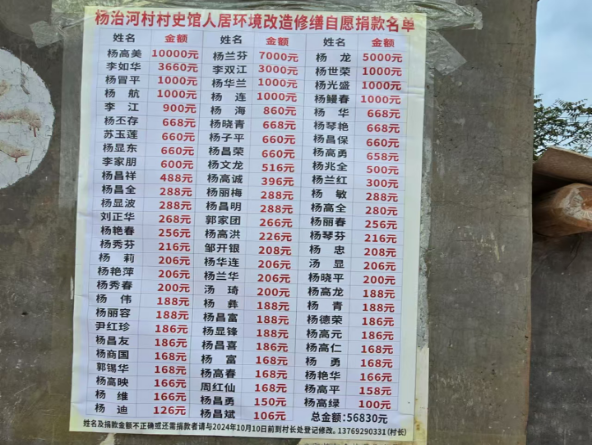 杨治河村村史馆人居环境改造修缮自愿捐款名单
姓名 金额 姓名 金额 姓名 金额
杨高美 10000元 杨兰芬 7000元 杨龙 5000元
李如华 3660元 李双江 3000元 杨世荣 1000元
杨冒平 1000元 杨华兰 1000元 杨光盛 1000元
杨航 1000元 杨连 1000元 杨鳗春 1000元
李江 900元 杨海 860元 杨华 668元
杨丕存 668元 杨晓青 668元 杨琴艳 668元
苏玉莲 660元 杨子平 660元 杨昌保 660元
杨显东 660元 杨昌荣 660元 杨高勇 658元
李家朋 600元 杨文龙 516元 杨兆全 500元
杨昌祥 488元 杨高诚 396元 杨兰红 300元
杨昌全 288元 杨丽梅 288元 杨敏 288元
杨显波 288元 杨昌明 288元 杨高全 280元
刘正华 268元 郭家团 266元 杨丽春 256元
杨艳春 256元 杨高洪 226元 杨琴芬 216元
杨秀芬 216元 邹开银 208元 杨忠 208元
杨莉 206元 杨华连 206元 汤显 206元
杨艳萍 206元 杨兰华 206元 杨晓平 200元
杨秀春 200元 汤琦 200元 杨高龙 188元
杨伟 188元 杨彝 188元 杨青 188元
杨丽容 188元 杨昌富 188元 杨德荣 186元
尹红珍 186元 杨显锋 188元 杨高元 186元
杨昌友 186元 杨昌喜 186元 杨高仁 168元
杨商国 168元 杨富 168元 杨勇 168元
郭锡华 168元 杨高春 168元 杨艳华 166元
杨高映 166元 周红仙 168元 杨高平 158元
杨维 166元 杨昌勇 150元 杨高绿 100元
杨迪 126元 杨昌斌 106元 总金额:56830元
姓名及捐款金额不正确或还需捐款者请与2024年10月10日前到村长处登记修改。13769290331(村长)